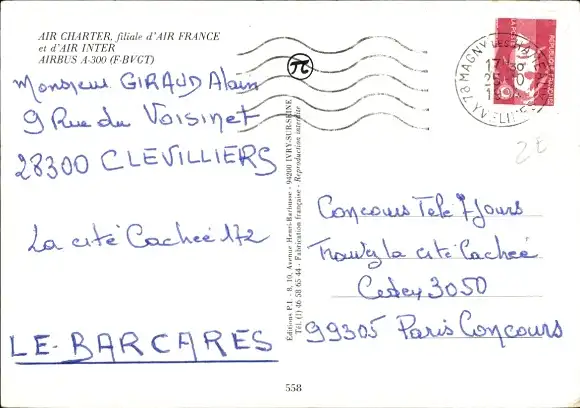 AIR CHARTER, filiale d'AIR FRANCE
et d'AIR INTER
AIRBUS A-300 (F-BVGT)
Monsieur GIRAUD Alain
9 Rue du Voisinet
28300 CLEVILLIERS
La cité Cachée 172
LE-BARCARES
Editions P.I. - 8, 10, Avenue Henri-Barbusse - 94200 IVRY-SUR-SEINE
Tél. (1) 46 58 65 44 - Fabrication française - Reproduction interdite
π
78 MAGNY LES HAMEAUX
17 H 30
25-10
YVELINES
LA POSTE
2E
Concours Télé 7 Jours
Trouvez la cité Cachée
Cedex 3050
99305 Paris Concours
558